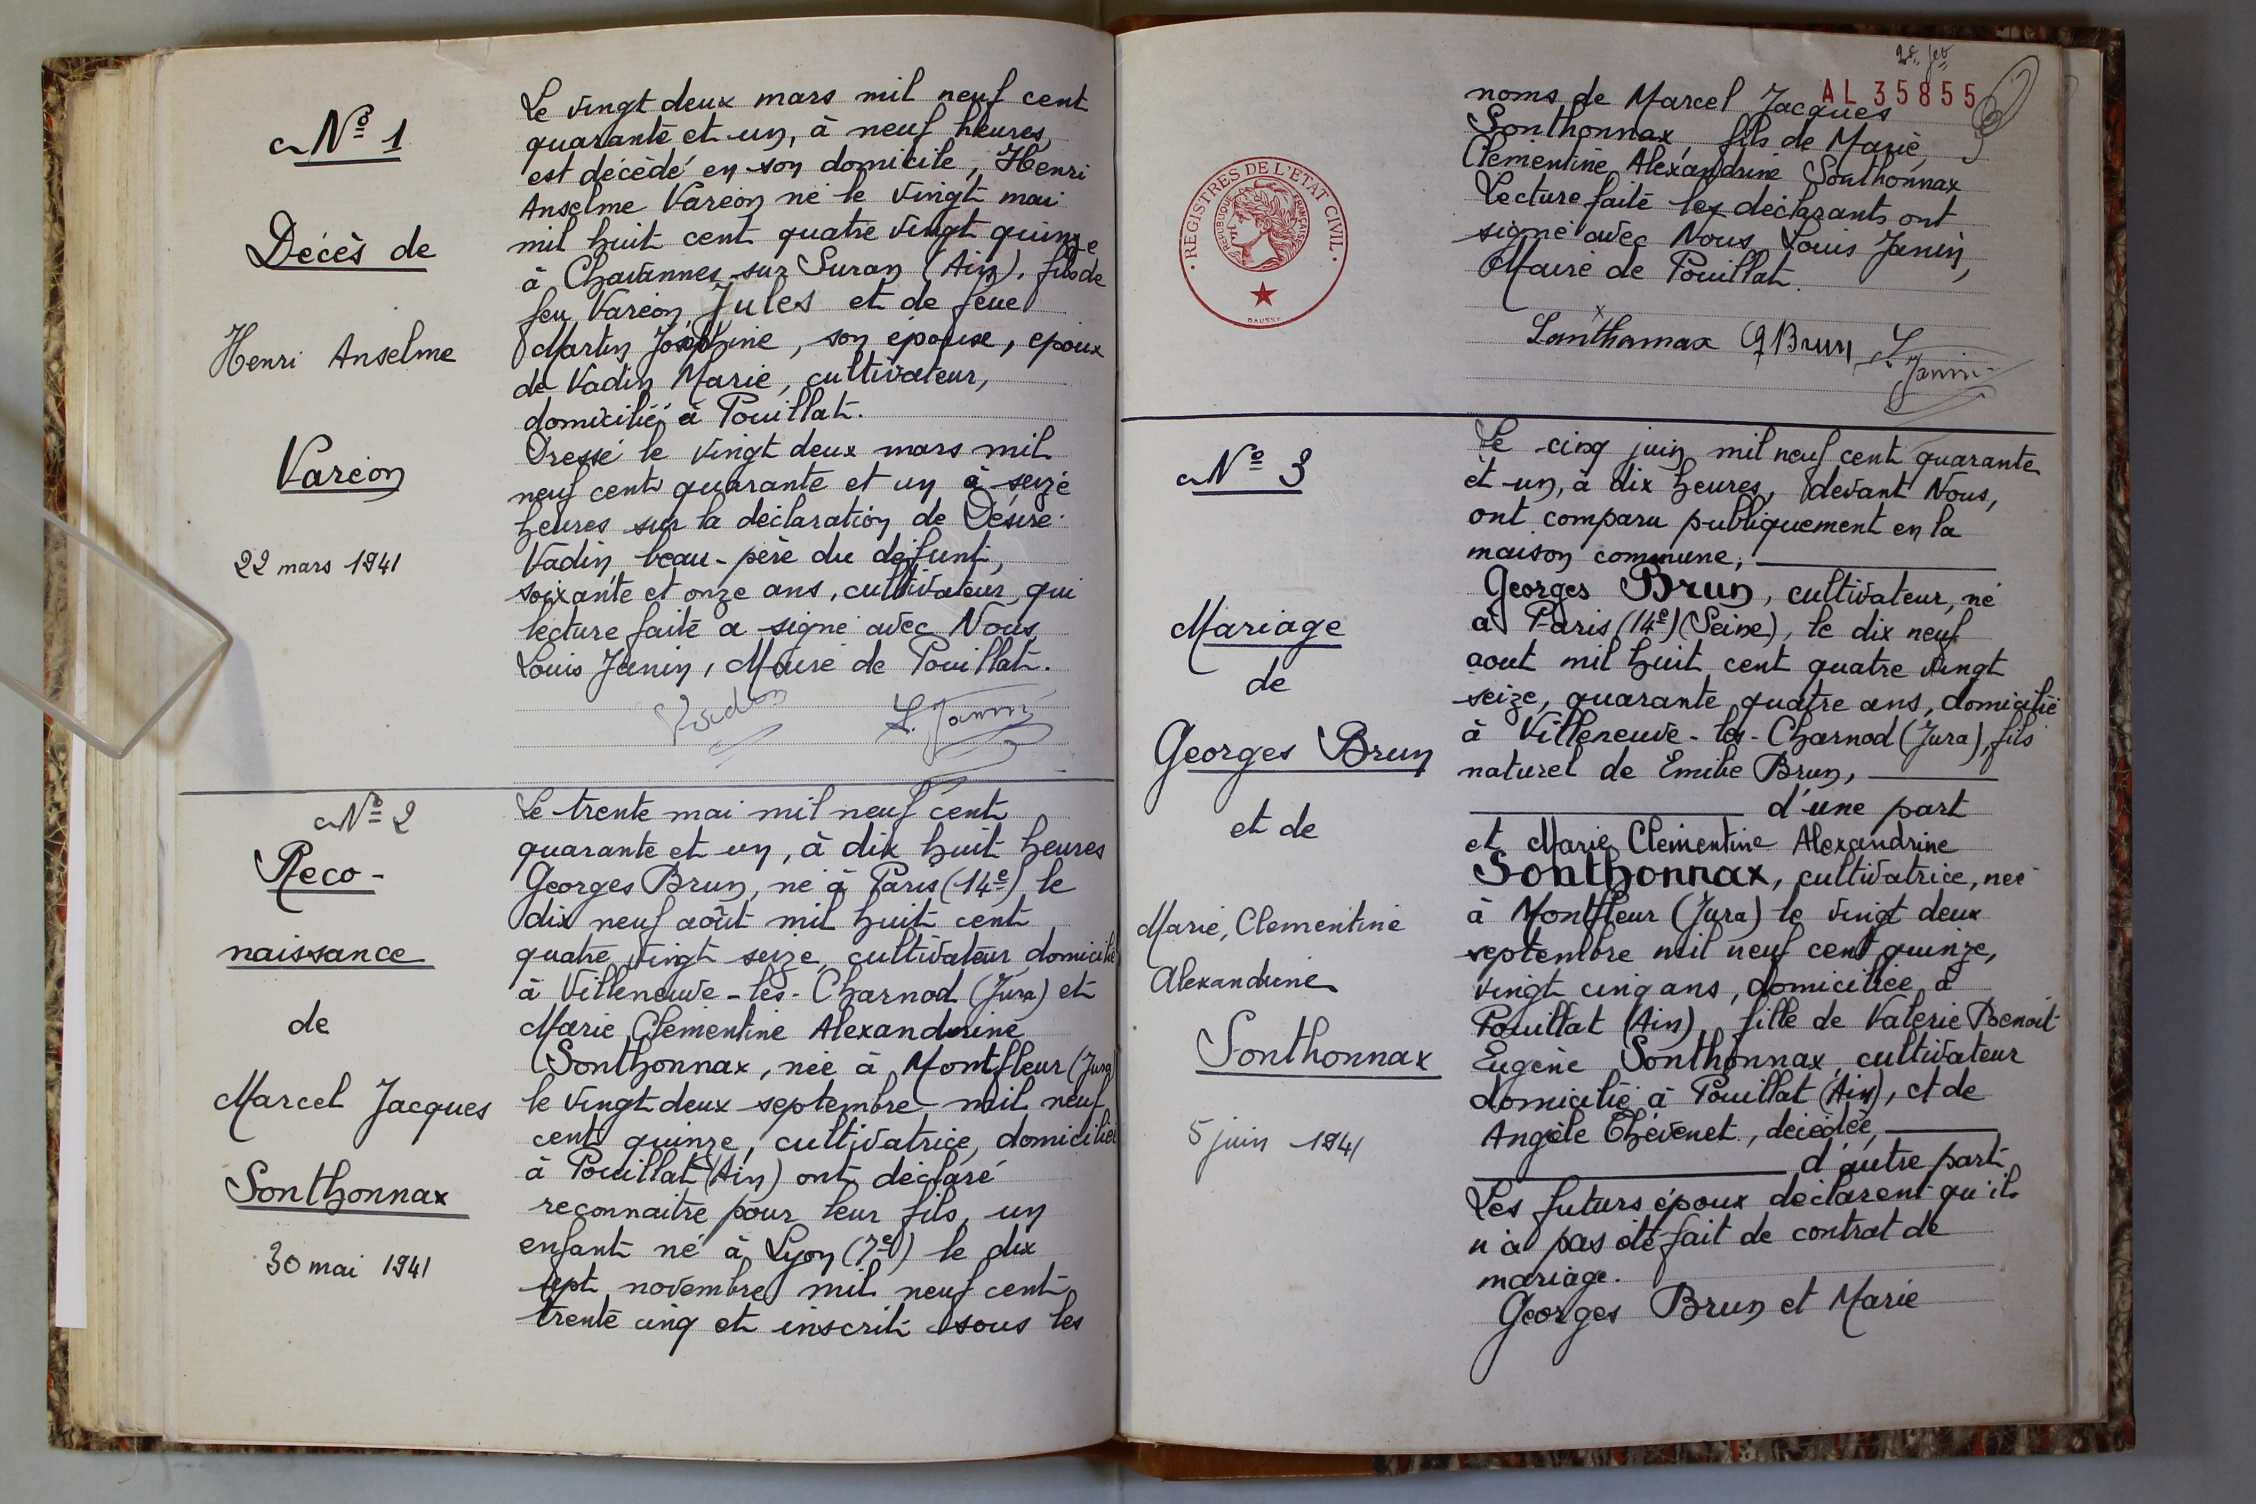 Nº 1
Décès de
Henri Anselme
Varéon
22 mars 1941
Le vingt deux mars mil neuf cent
quarante et un, à neuf heures,
est décédé en son domicile, Henri
Anselme Varéon né le vingt mai
mil huit cent quatre vingt quinze
à Chavannes sur Suran (Ain), fils de
feu Varéon Jules et de feue
Martin Joséphine, son épouse, époux
de Vadin Marie, cultivateur,
domicilié à Pouillat.
Dressé le vingt deux mars mil
neuf cent quarante et un à seize
heures sur la déclaration de Désiré
Vadin beau-père du défunt,
soixante et onze ans, cultivateur, qui
lecture faite a signé avec Nous,
Louis Janin, Maire de Pouillat.
Vadin L. Janin
Nº 2
Reco-
naissance
de
Marcel Jacques
Sonthonnax
30 mai 1941
Le trente mai mil neuf cent
quarante et un, à dix huit heures
Georges Brun, né à Paris (14e) le
dix neuf août mil huit cent
quatre vingt seize, cultivateur, domicilié
à Villeneuve-les-Charnod (Jura) et
Marie Clémentine Alexandrine
Sonthonnax, née à Montfleur (Jura)
le vingt deux septembre mil neuf
cent quinze, cultivatrice, domiciliée
à Pouillat (Ain) ont déclaré
reconnaitre pour leur fils, un
enfant né à Lyon (7e) le dix
sept novembre mil neuf cent
trente cinq et inscrit sous les
AL 35855
noms de Marcel Jacques
Sonthonnax, fils de Marie,
Clémentine Alexandrine Sonthonnax
Lecture faite les déclarants ont
signé avec Nous, Louis Janin,
Maire de Pouillat.
Sonthonnax G Brun L. Janin
REGISTRES DE L'ETAT CIVIL
REPUBLIQUE FRANÇAISE
DAUSSY
Nº 3
Mariage
de
Georges Brun
et de
Marie, Clementine
Alexandrine
Sonthonnax
5 juin 1941
Le cinq juin mil neuf cent quarante
et un, à dix heures, devant Nous,
ont comparu publiquement en la
maison commune,
Georges Brun, cultivateur, né
à Paris (14e) (Seine), le dix neuf
aout mil huit cent quatre vingt
seize, quarante quatre ans, domicilié
à Villeneuve-les-Charnod (Jura), fils
naturel de Emilie Brun,
d'une part
et Marie Clémentine Alexandrine
Sonthonnax, cultivatrice, née
à Montfleur (Jura) le vingt deux
septembre mil neuf cent quinze,
vingt cinq ans, domiciliée à
Pouillat (Ain), fille de Valérie Benoit
Eugène Sonthonnax, cultivateur
domicilié à Pouillat (Ain), et de
Angèle Thévenet, décédée,
d'autre part
Les futurs époux déclarent qu'il
n'a pas été fait de contrat de
mariage.
Georges Brun et Marie